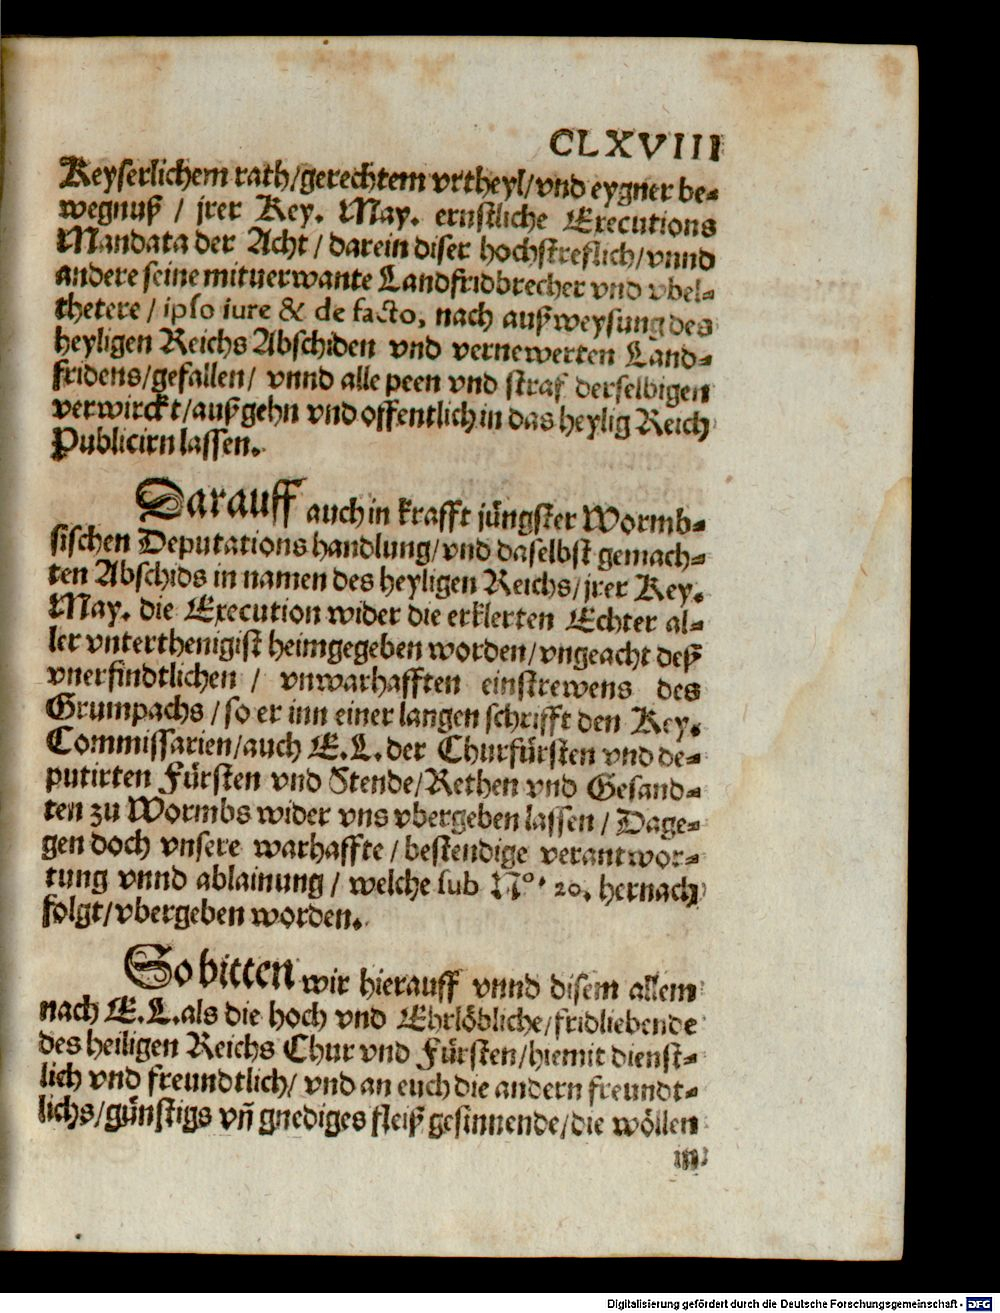 CLXVIII
Keyserlichem rath/gerechtem vrtheyl/vnd eygner be-
wegnuß / jrer Key. May. ernstliche Executions
Mandata der Acht / darein diser hochstreflich/vnnd
andere seine mituerwante Landfridbrecher vnd vbel-
thetere / ipso iure & de facto, nach außweysung des
heyligen Reichs Abschiden vnd vernewerten Land-
fridens/gefallen/ vnnd alle peen vnd straf derselbigen
verwirckt/außgehn vnd offentlich in das heylig Reich
Publicirn lassen.
Darauff auch in krafft jüngster Wormb-
sischen Deputations handlung/vnd daselbst gemach-
ten Abschids in namen des heyligen Reichs/jrer Key.
May. die Execution wider die erklerten Echter al-
ler vnterthenigist heimgegeben worden/vngeacht deß
vnerfindtlichen / vnwarhafften einstrewens des
Grumpachs / so er inn einer langen schrifft den Key.
Commissarien/auch E.L. der Churfürsten vnd de-
putirten Fürsten vnd Stende/Rethen vnd Gesand-
ten zu Wormbs wider vns vbergeben lassen / Dage-
gen doch vnsere warhaffte / bestendige verantwor-
tung vnnd ablainung / welche sub Nº. 20. hernach
folgt/vbergeben worden.
So bitten wir hierauff vnnd disem allem
nach E.L. als die hoch vnd Ehrlöbliche/fridliebende
des heiligen Reichs Chur vnd Fürsten/hiemit dienst-
lich vnd freundtlich/ vnd an euch die andern freundt-
lichs/günstigs vñ gnediges fleiß gesinnende/die wöllen
Digitalisierung gefördert durch die Deutsche Forschungsgemeinschaft - DFG